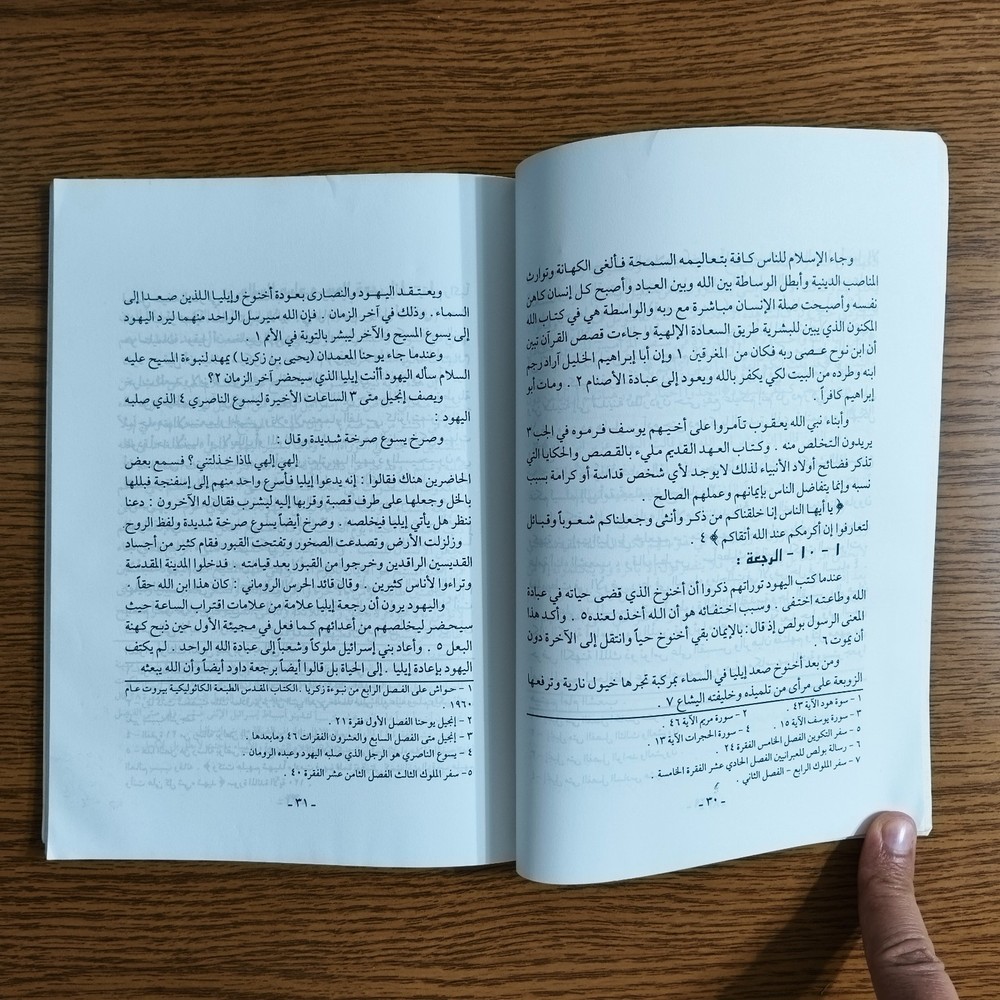 وجاء الإسلام للناس كافة بتعاليمه السمحة فألغى الكهانة وتوارث
المناصب الدينية وأبطل الوساطة بين الله وبين العباد وأصبح كل إنسان كاهن
نفسه وأصبحت صلة الإنسان مباشرة مع ربه والواسطة هي في كتاب الله
المكنون الذي يبين للبشرية طريق السعادة الإلهية وجاءت قصص القرآن تبين
أن ابن نوح عصى ربه فكان من المغرقين ١ وإن أبا إبراهيم الخليل أراد رجم
ابنه وطرده من البيت لكي يكفر بالله ويعود إلى عبادة الأصنام ٢ . ومات أبو
إبراهيم كافراً .
وأبناء نبي الله يعقوب تآمروا على أخيهم يوسف فرموه في الجب ٣
يريدون التخلص منه . وكتاب العهد القديم مليء بالقصص والحكايا التي
تذكر فضائح أولاد الأنبياء لذلك لايوجد لأي شخص قداسة أو كرامة بسبب
نسبه وإنما يتفاضل الناس بإيمانهم وعملهم الصالح .
﴿ يا أيها الناس إنا خلقناكم من ذكر وأنثى وجعلناكم شعوباً وقبائل
لتعارفوا إن أكرمكم عند الله أتقاكم ﴾ ٤ .
١ - ١٠ - الرجعة :
عندما كتب اليهود توراتهم ذكروا أن أخنوخ الذي قضى حياته في عبادة
الله وطاعته اختفى . وسبب اختفائه هو أن الله أخذه لعنده ٥ . وأكد هذا
المعنى الرسول بولص إذ قال : بالإيمان بقي أخنوخ حياً وانتقل إلى الآخرة دون
أن يموت ٦ .
ومن بعد أخنوخ صعد إيليا في السماء بمركبة تجرها خيول نارية وترفعها
الزوبعة على مرأى من تلميذه وخليفته اليشاع ٧ .
١ - سورة هود الآية ٤٣ . ٢ - سورة مريم الآية ٤٦ .
٣ - سورة يوسف الآية ١٥ . ٤ - سورة الحجرات الآية ١٣ .
٥ - سفر التكوين الفصل الخامس الفقرة ٢٤
٦ - رسالة بولص للعبرانيين الفصل الحادي عشر الفقرة الخامسة .
٧ - سفر الملوك الرابع - الفصل الثاني .
- ٣٠ -
ويعتقد اليهود والنصارى بعودة أخنوخ وإيليا اللذين صعدا إلى
السماء . وذلك في آخر الزمان . فإن الله سيرسل الواحد منهما ليرد اليهود
إلى يسوع المسيح والآخر ليبشر بالتوبة في الأمم ١ .
وعندما جاء يوحنا المعمدان ( يحيى بن زكريا ) يمهد لنبوءة المسيح عليه
السلام سأله اليهود أأنت إيليا الذي سيحضر آخر الزمان ٢؟
ويصف إنجيل متى ٣ الساعات الأخيرة ليسوع الناصري ٤ الذي صلبه
اليهود :
وصرخ يسوع صرخة شديدة وقال :
إلهي إلهي لماذا خذلتني ؟ فسمع بعض
الحاضرين هناك فقالوا : إنه يدعوا إيليا فأسرع واحد منهم إلى إسفنجة فبللها
بالخل وجعلها على طرف قصبة وقربها إليه ليشرب فقال له الآخرون : دعنا
ننظر هل يأتي إيليا فيخلصه . وصرخ أيضاً يسوع صرخة شديدة ولفظ الروح
وزلزلت الأرض وتصدعت الصخور وتفتحت القبور فقام كثير من أجساد
القديسين الراقدين وخرجوا من القبور بعد قيامته . فدخلوا المدينة المقدسة
وتراءوا لأناس كثيرين . وقال قائد الحرس الروماني : كان هذا ابن الله حقاً .
واليهود يرون أن رجعة إيليا علامة من علامات اقتراب الساعة حيث
سيحضر ليخلصهم من أعدائهم كما فعل في مجيئة الأول حين ذبح كهنة
البعل ٥ . وأعاد بني إسرائيل ملوكاً وشعباً إلى عبادة الله الواحد . لم يكتف
اليهود بإعادة إيليا . إلى الحياة بل قالوا أيضاً برجعة داود أيضاً وأن الله يبعثه
١ - حواش على الفصل الرابع من نبوءة زكريا . الكتاب المقدس الطبعة الكاثوليكية بيروت عام
١٩٦٠ .
٢ - إنجيل يوحنا الفصل الأول فقرة ٢١ .
٣ - إنجيل متى الفصل السابع والعشرون الفقرات ٤٦ ومابعدها .
٤ - يسوع الناصري هو الرجل الذي صلبه اليهود وعبده الرومان .
٥ - سفر الملوك الثالث الفصل الثامن عشر الفقرة ٤٠ .
- ٣١ -